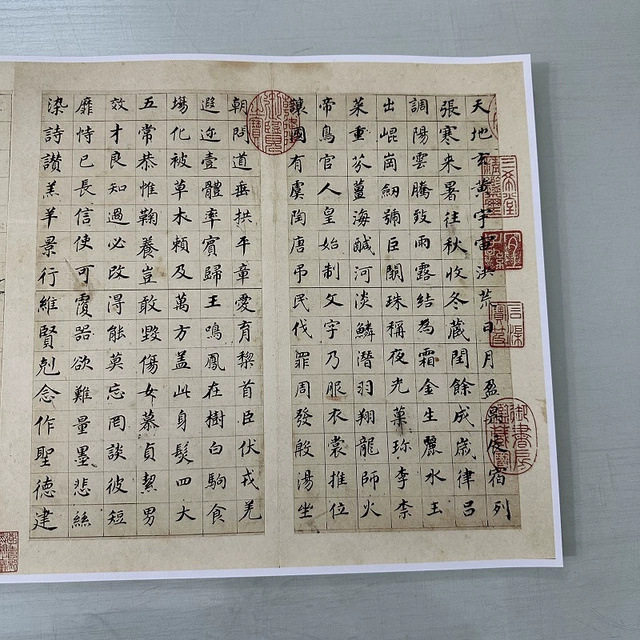 天地玄黃宇宙洪荒日月盈昃辰宿列
張寒来暑往秋收冬藏閏餘成歲律吕
調陽雲騰致雨露結為霜金生麗水玉
出崐崗劒號巨闕珠稱夜光菓珎李柰
菜重芥薑海鹹河淡鱗潛羽翔龍師火
帝鳥官人皇始制文字乃服衣裳推位
讓國有虞陶唐弔民伐罪周發殷湯坐
朝問道垂拱平章愛育黎首臣伏戎羌
遐迩壹體率賓歸王鳴鳳在樹白駒食
場化被草木賴及萬方盖此身髮四大
五常恭惟鞠養豈敢毀傷女慕貞絜男
效才良知過必改得能莫忘罔談彼短
靡恃己長信使可覆器欲難量墨悲絲
染詩讃羔羊景行維賢剋念作聖德建
三希堂
精鑑璽
宜子孫
石渠
寶笈
御書房